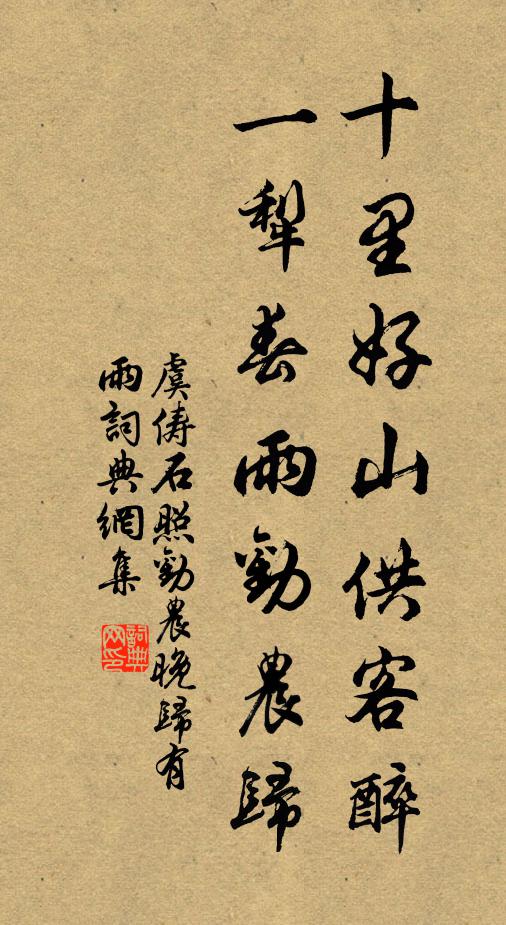 十里好山供客醉
一犁春雨勸農歸
虞儔石照勸農晚歸有
雨詞典網集
詞典
网印